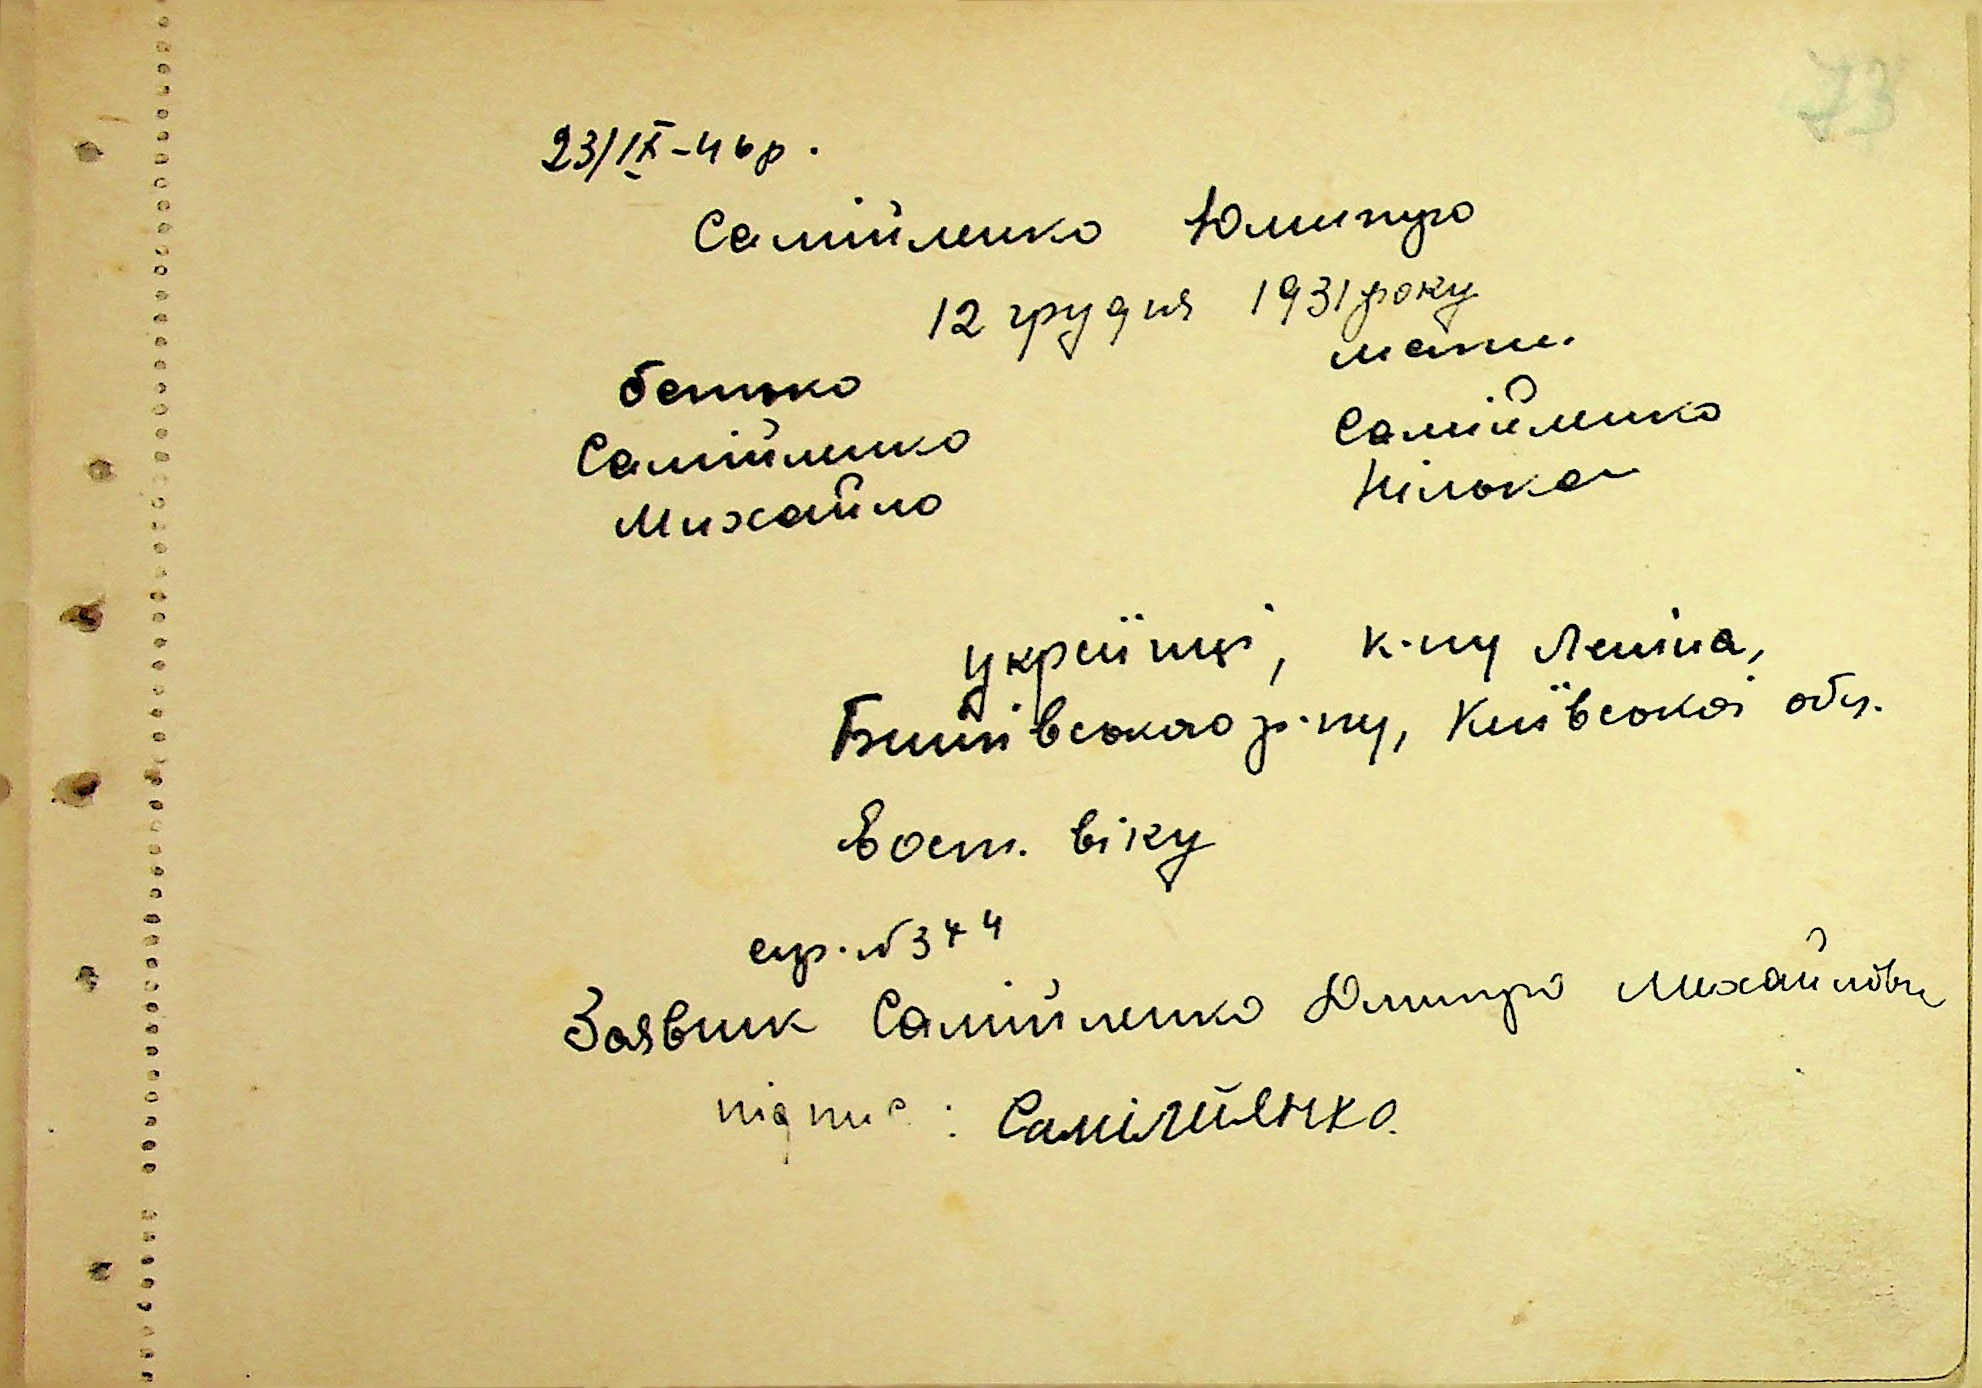 73
23/IX-46р.
Самійленко Дмитро
12 грудня 1931 року
батько мати.
Самійленко Самійленко
Михайло Нілька
українці, к-пу Леніна,
р-ну, Київської обл.
Вост. віку
стр. №344
Заявник Самійленко Дмитро Михайлович
підпис: Самілйленко.